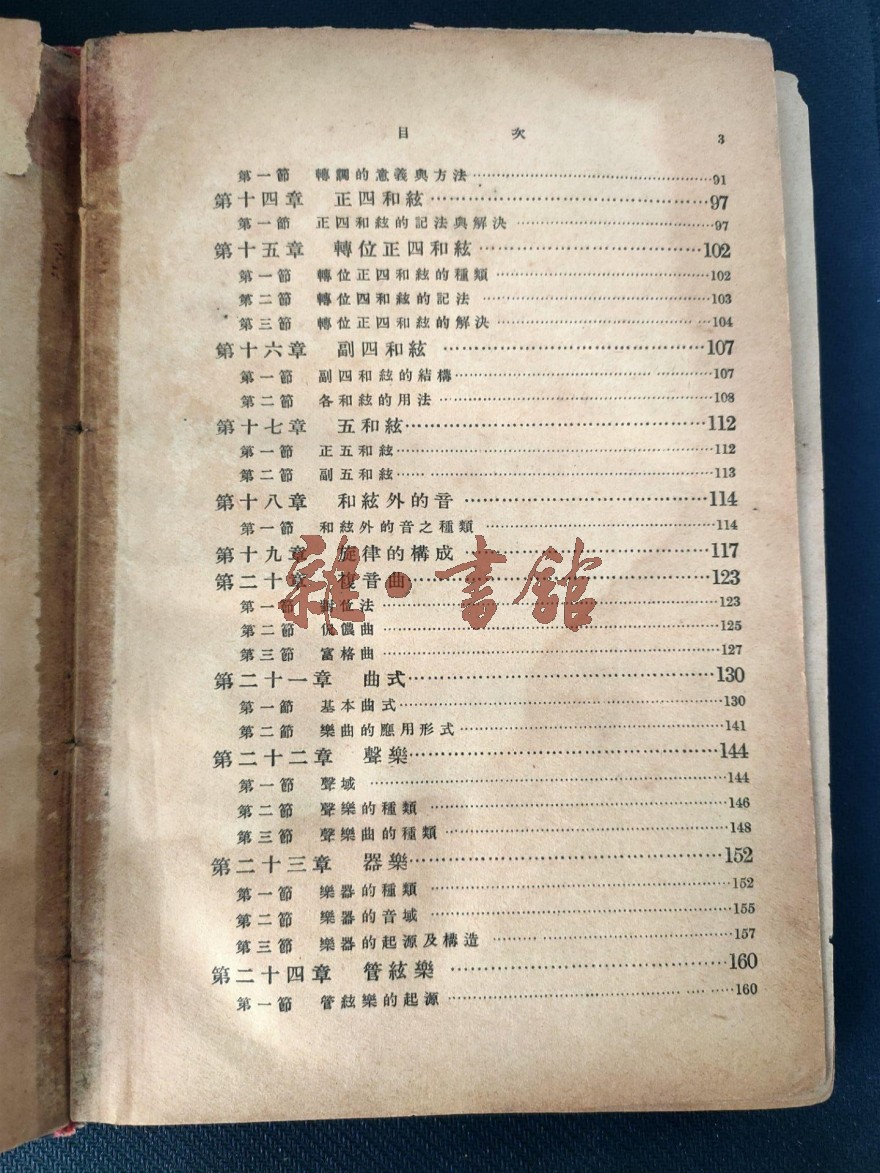 目 次 3
第一節 轉調的意義與方法 91
第十四章 正四和絃 97
第一節 正四和絃的記法與解決 97
第十五章 轉位正四和絃 102
第一節 轉位正四和絃的種類 102
第二節 轉位四和絃的記法 103
第三節 轉位正四和絃的解決 104
第十六章 副四和絃 107
第一節 副四和絃的結構 107
第二節 各和絃的用法 108
第十七章 五和絃 112
第一節 正五和絃 112
第二節 副五和絃 113
第十八章 和絃外的音 114
第一節 和絃外的音之種類 114
第十九章 旋律的構成 117
第二十章 複音曲 123
第一節 對位法 123
第二節 儂曲 125
第三節 富格曲 127
雜·書館
第二十一章 曲式 130
第一節 基本曲式 130
第二節 樂曲的應用形式 141
第二十二章 聲樂 144
第一節 聲域 144
第二節 聲樂的種類 146
第三節 聲樂曲的種類 148
第二十三章 器樂 152
第一節 樂器的種類 152
第二節 樂器的音域 155
第三節 樂器的起源及構造 157
第二十四章 管絃樂 160
第一節 管絃樂的起源 160